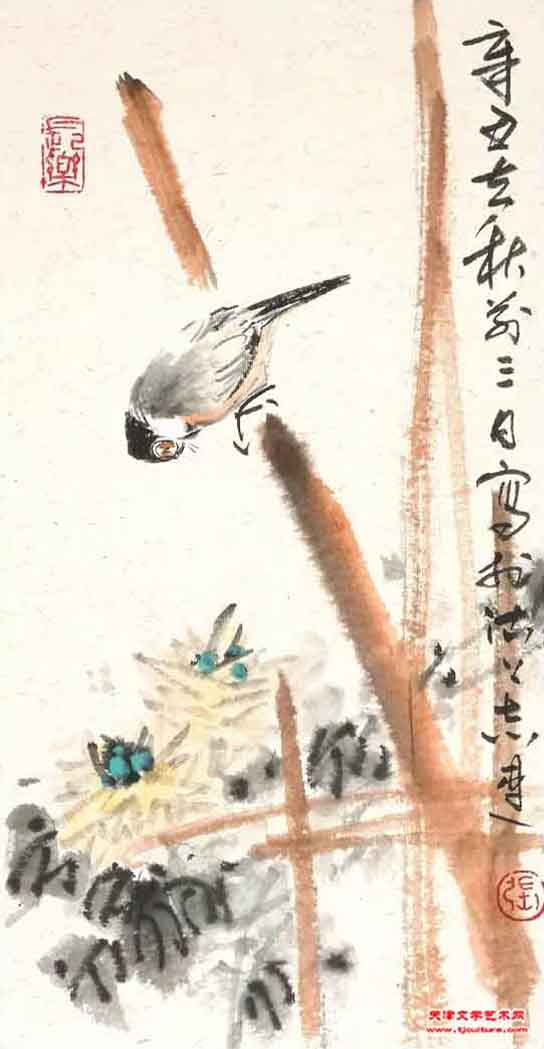 辛丑立秋前三日寫於沽上志連
長樂
張
天津文学艺术网
www.tjculture.com